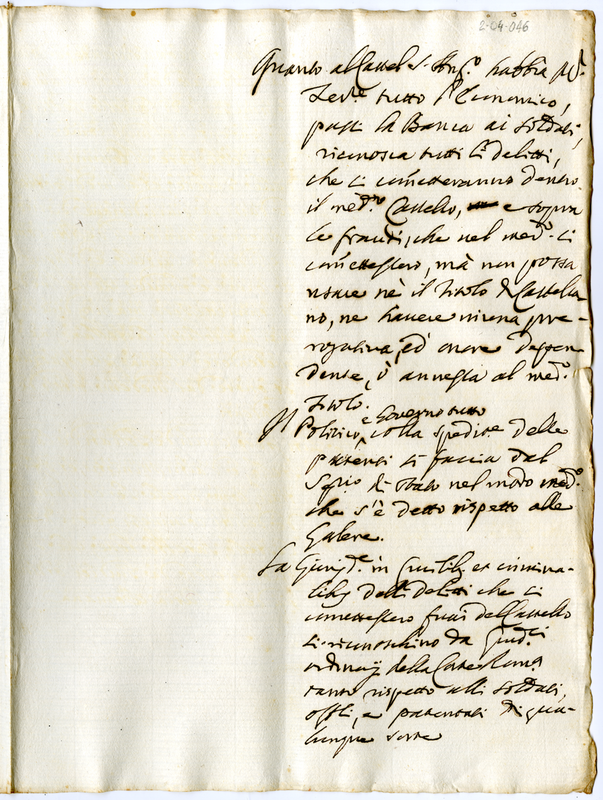 2-04-046
Quanto al Castel S. Ang.o habbia M.r
Tes.re tutto l'Economico,
passi la Banca ai soldati,
riconosca tutti li delitti,
che si com̃etteranno dentro
il med.mo Castello, e sopra
le fraudi, che nel med.o si
com̃ettessero, mà non possa
usare nè il Titolo di Castella
no, ne havere niuna pre-
rogativa, ed onore depen
dente, ò annessa al med.o
Titolo.
Il Politico, e Governo tutto
colla spedit.e delle
patenti si faccia dal
Seg.rio di Stato nel modo med.o
che s'è detto rispetto alle
Galere.
La Giurisd.e in Civilib. et crimina-
libus delli delitti che si
com̃ettessero fuori del Castello
si riconoschino da Giud.ci
ordinarij della
tanto rispetto alli soldati,
offli, e patentati di qua-
lunque sorte